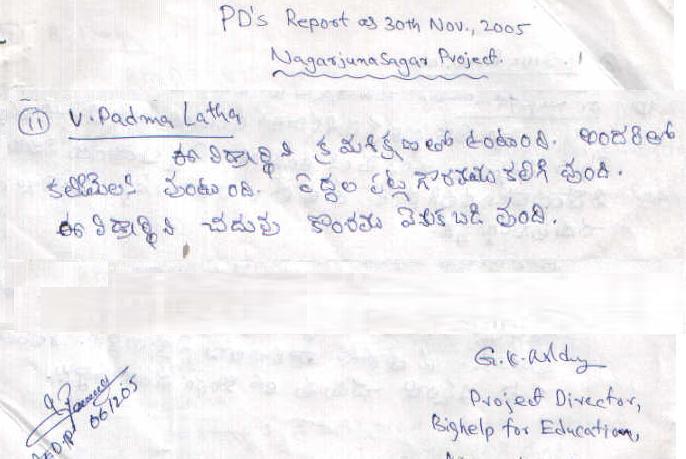 PD's Report as 30th Nov., 2005
Nagarjuna Sagar Project.
(11) V. Padma Latha
ఈ విద్యార్థిని క్రమశిక్షణతో ఉంటుంది. అందరితో
కలిసిమెలసి వుంటుంది. పెద్దల పట్ల గౌరవము కలిగి వుంది.
ఈ విద్యార్థిని చదువు కొంచము వెనుకబడి వుంది.
G.K. Reddy
Project Director,
061205
Bighelp for Education,